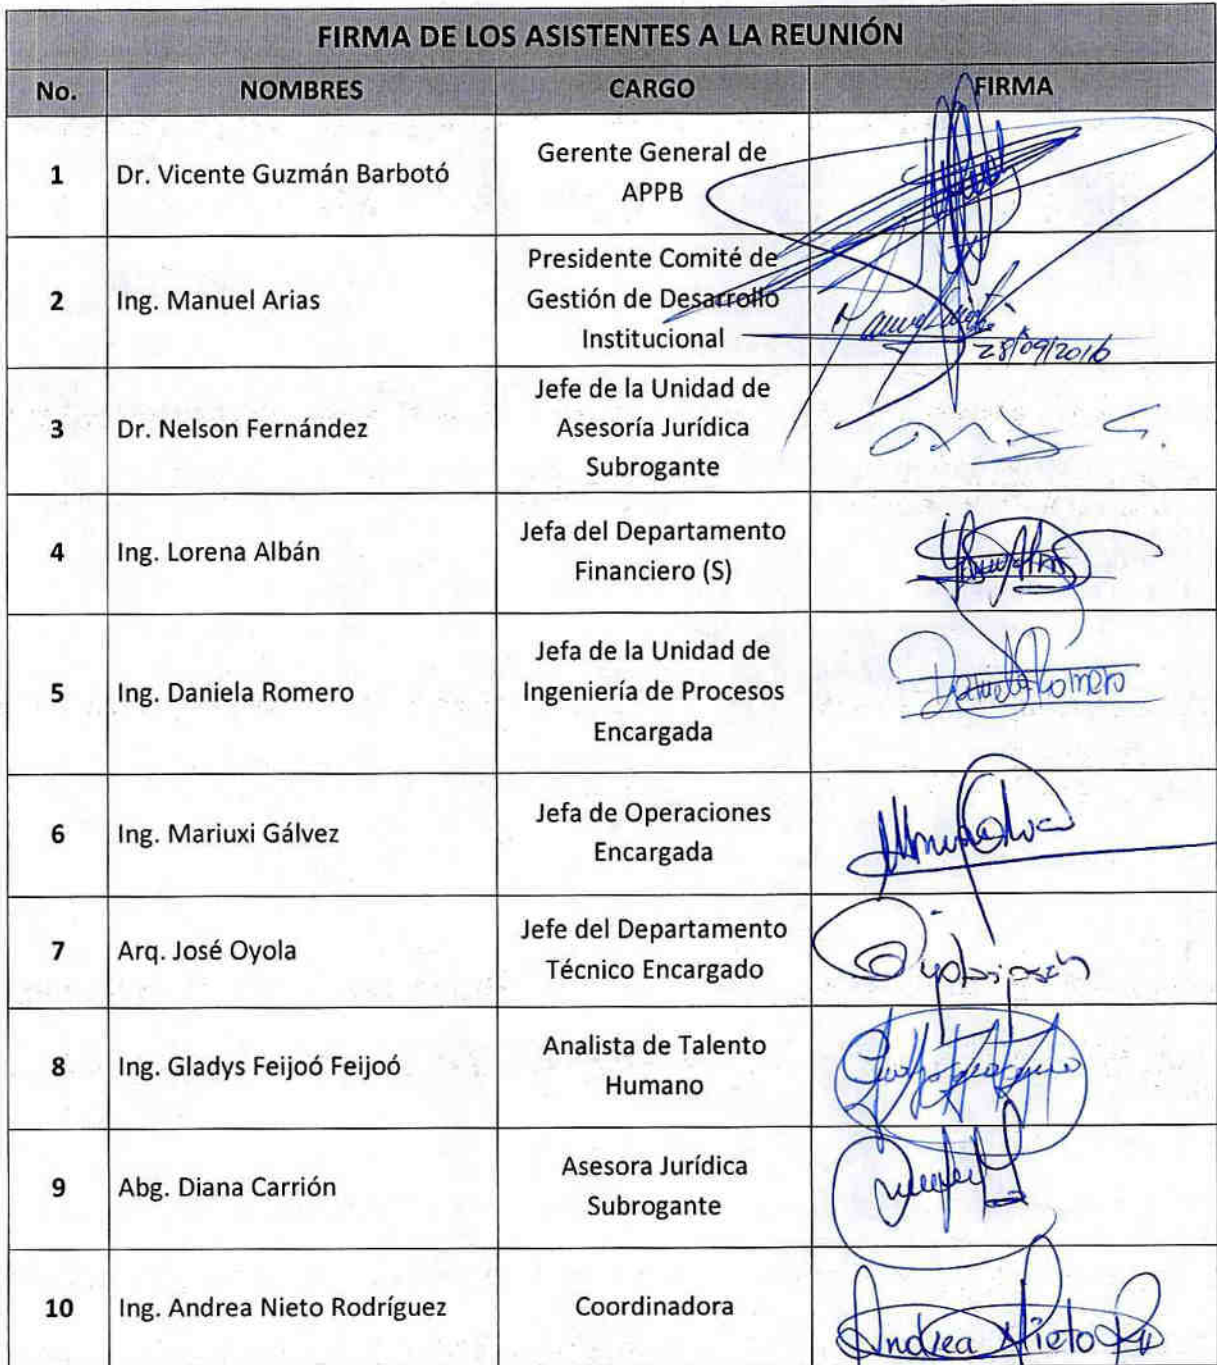 FIRMA DE LOS ASISTENTES A LA REUNIÓN
No. NOMBRES CARGO FIRMA
1 Dr. Vicente Guzmán Barbotó Gerente General de
APPB
2 Ing. Manuel Arias Presidente Comité de
Gestión de Desarrollo
Institucional
28/09/2016
3 Dr. Nelson Fernández Jefe de la Unidad de
Asesoría Jurídica
Subrogante
4 Ing. Lorena Albán Jefa del Departamento
Financiero (S)
5 Ing. Daniela Romero Jefa de la Unidad de
Ingeniería de Procesos
Encargada
Daniela Romero
6 Ing. Mariuxi Gálvez Jefa de Operaciones
Encargada
7 Arq. José Oyola Jefe del Departamento
Técnico Encargado
8 Ing. Gladys Feijoó Feijoó Analista de Talento
Humano
9 Abg. Diana Carrión Asesora Jurídica
Subrogante
10 Ing. Andrea Nieto Rodríguez Coordinadora
Andrea Nieto